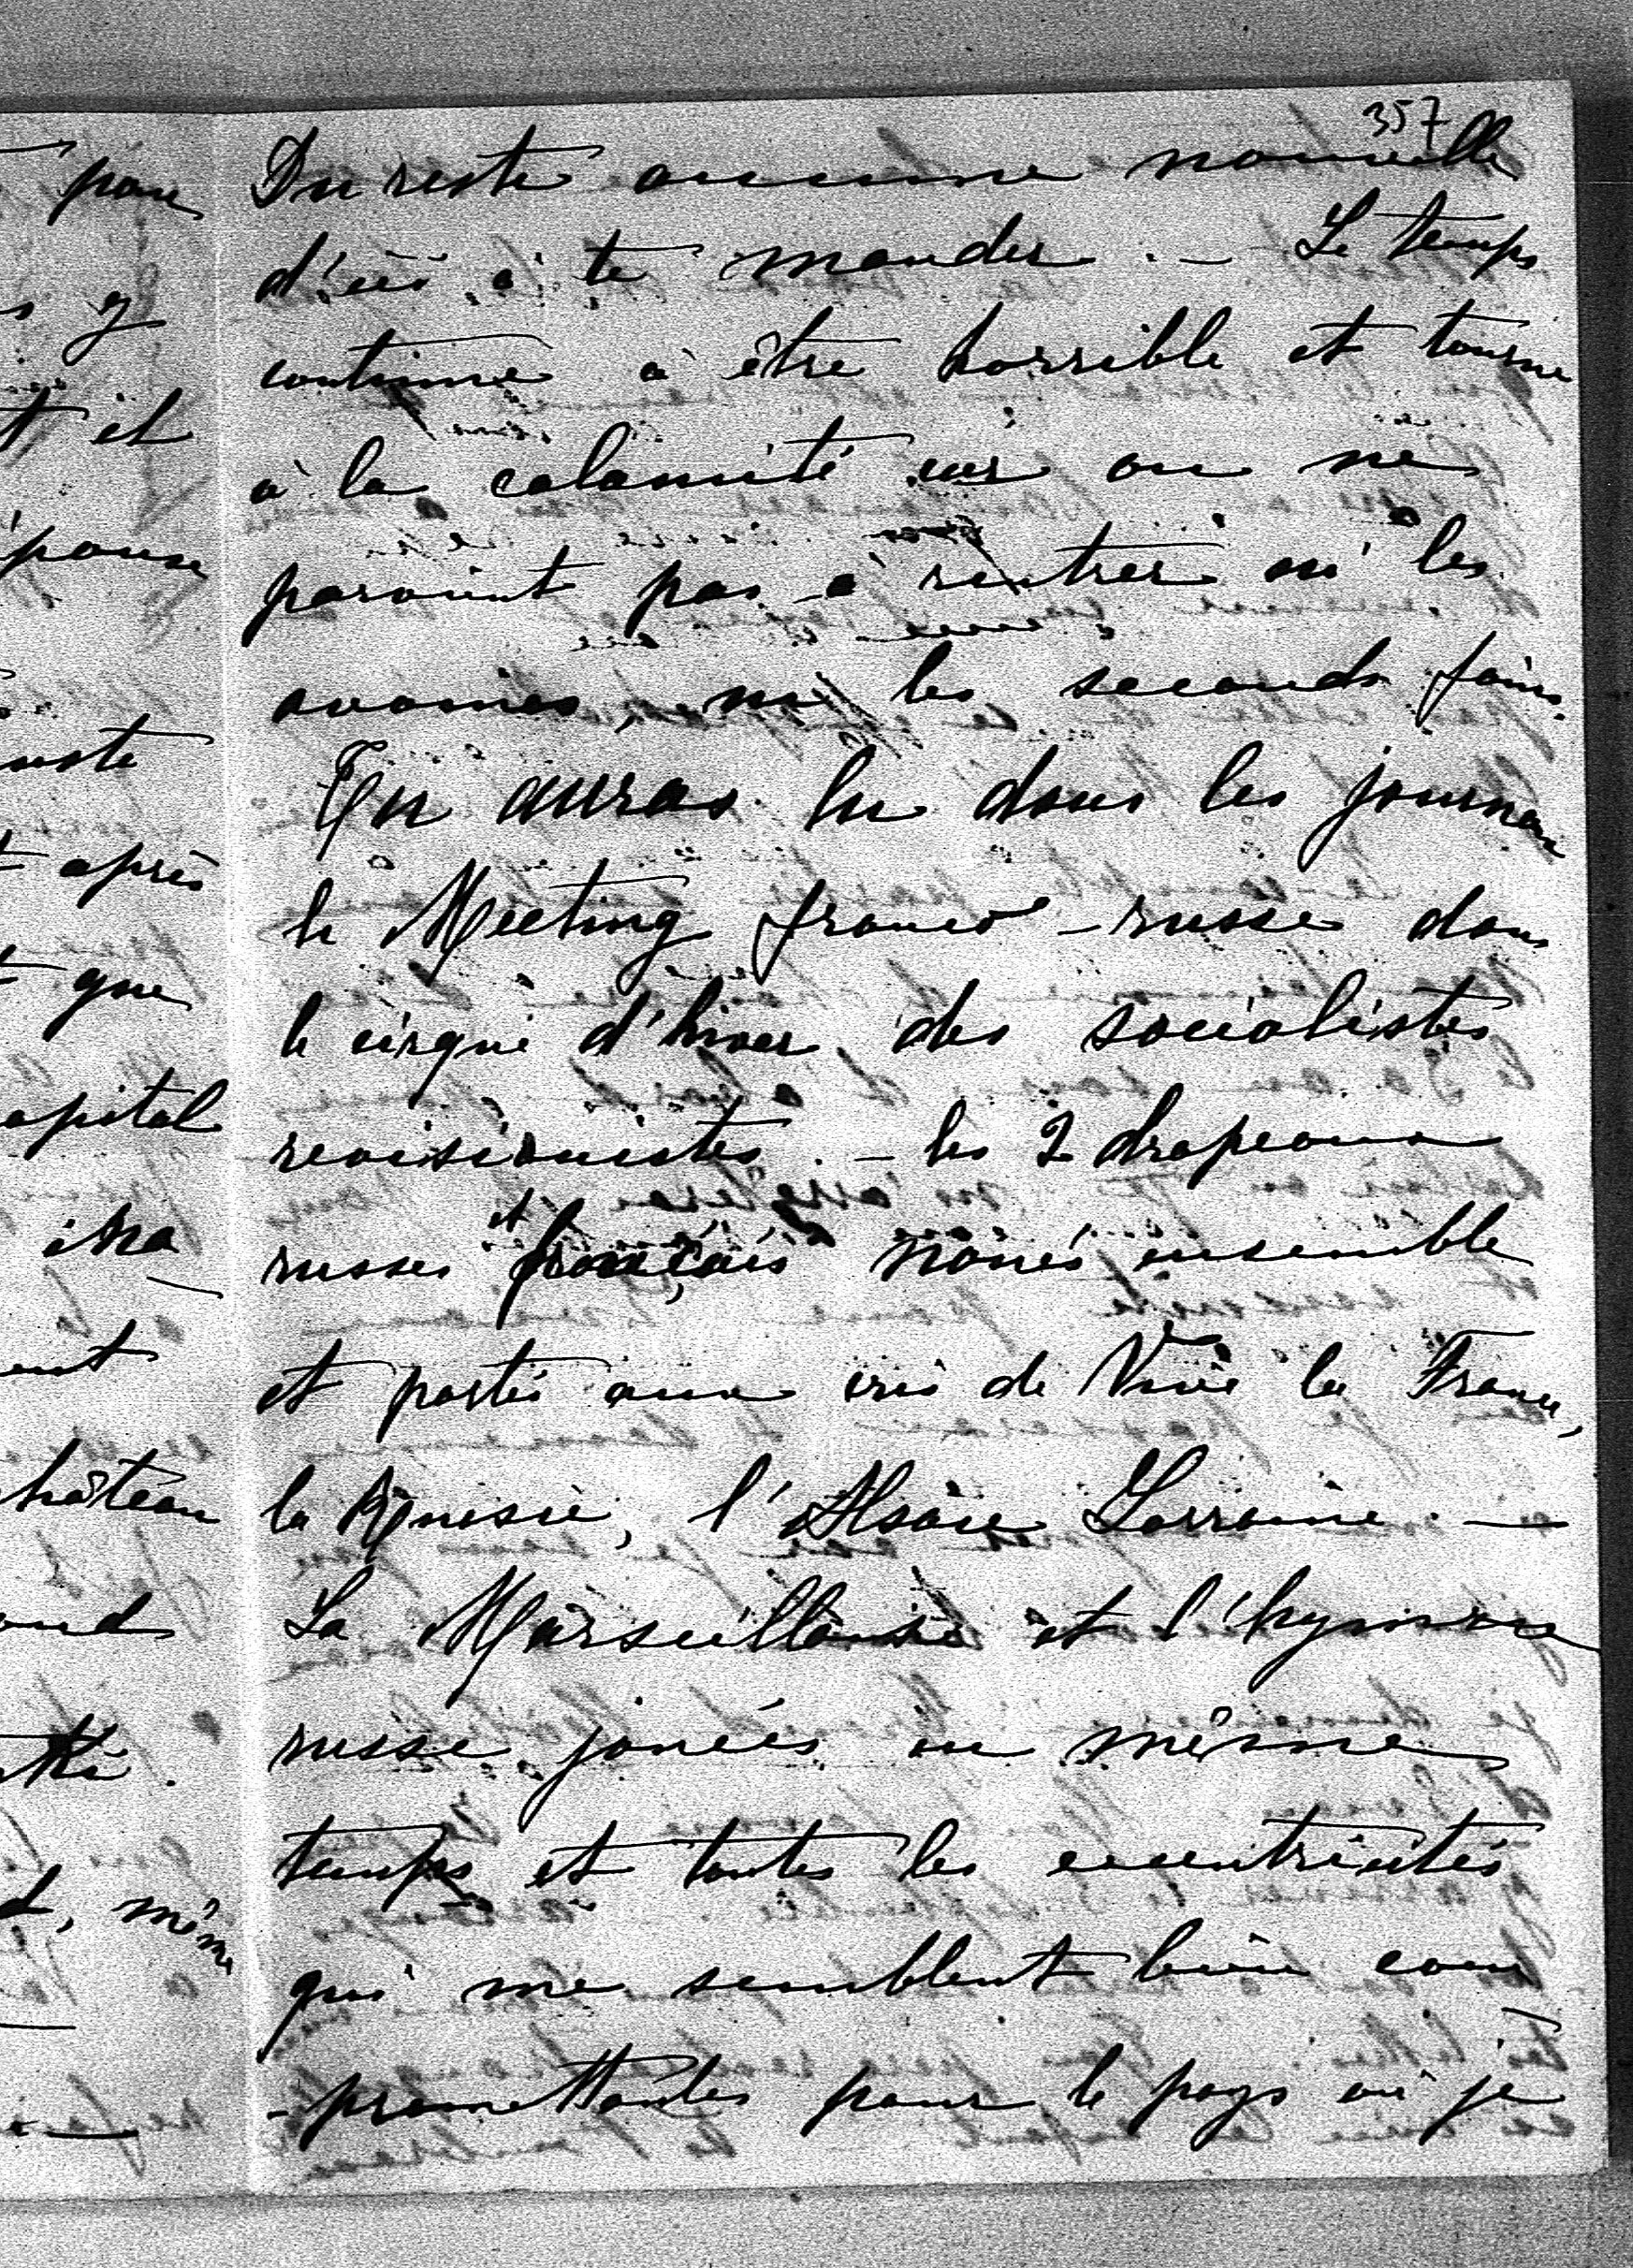 357
Du reste aucune nouvelle
d'ici à te mander. — Le temps
continue à être horrible et tourne
à la calamité car on ne
parvient pas à rentrer ni les
avoines, ni les seconds foins.
Tu auras lu dans les journaux
le Meeting franco-russe dans
le cirque d'hiver des socialistes
revisionistes. — les 2 drapeaux
russes et français noués ensemble
et portés aux cris de Vive la France,
la Russie, l'Alsace Lorraine. —
La Marseillaise et l'hymne
russe jouées en même
temps et toutes les excentricités
qui me semblent bien com
-promettantes pour le pays où je
pour
y
et il
après
que
château
même